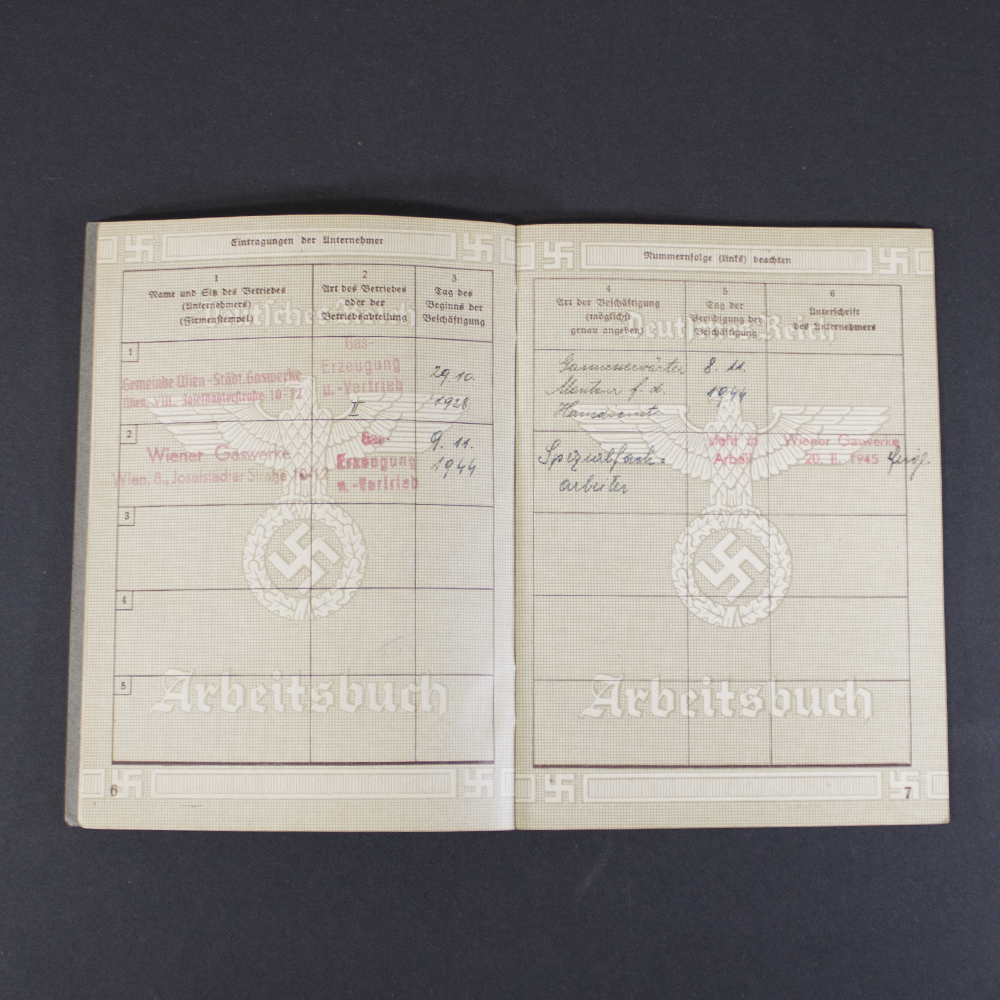 Eintragungen der Unternehmer
1
Name und Sitz des Betriebes
(Unternehmers)
(Firmenstempel)
2
Art des Betriebes
oder der
Betriebsabteilung
3
Tag des
Beginns der
Beschäftigung
Deutsches Reich
1
Gemeinde Wien-Städt. Gaswerke
Wien, VIII. Josefstädterstraße 10-12
Gas-
Erzeugung
u. -Vertrieb
II
29.10.
1928
2
Wiener Gaswerke
Wien, 8., Josefstädter Straße 10-12
Gas-
Erzeugung
u. -Vertrieb
9. 11.
1944
3
4
5
Arbeitsbuch
6
Nummernfolge (links) beachten
4
Art der Beschäftigung
(möglichst
genau angeben)
5
Tag der
Beendigung der
Beschäftigung
6
Unterschrift
des Unternehmers
Deutsches Reich
Monteur f. d.
8. 11.
1944
Spezialfach-
arbeiter
steht in
Arbeit
Wiener Gaswerke
20. II. 1945
Arbeitsbuch
7